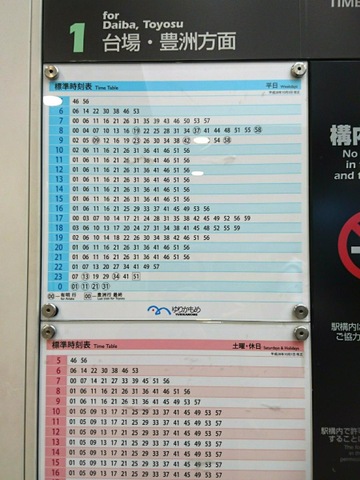 TIME
for
Daiba, Toyosu
1 台場・豊洲方面
標準時刻表 Time Table 平日 Weekdays
46 56
6 06 14 22 30 38 46 53
7 00 06 11 16 21 26 31 35 39 43 46 50 53 57
8 00 04 07 10 13 16 19 22 25 28 31 34 37 41 44 48 51 55 58
9 02 05 09 12 16 19 23 26 30 34 38 42 54 58
10 02 06 11 16 21 26 31 36 41 46 51 56
11 06 11 16 21 26 31 36 41 46 51 56
12 06 11 16 21 26 31 36 41 46 51 56
13 06 11 16 21 26 31 36 41 46 51 56
14 06 11 16 21 26 31 36 41 46 51 56
15 06 11 16 21 26 31 36 41 46 51 56
16 06 11 16 21 25 29 33 37 41 45 49 53 56
17 00 03 07 10 14 17 21 24 28 31 35 38 42 45 49 52 55 59
18 03 06 10 13 17 20 24 27 31 34 38 41 45 48 52 55 59
19 02 06 10 14 18 22 26 30 34 38 42 46 51 56
20 01 06 11 16 21 26 31 36 41 46 51 56
21 01 06 11 16 21 26 31 36 41 46 51 56
22 01 07 13 20 27 34 41 49 57
23 07 13 19 27 34 41 51
0 01 11 21 31
ゆりかもめ
YURIKAMOME
標準時刻表 Time Table 土曜・休日 Saturdays & Holidays
5 46 56
6 06 14 22 30 38 46 53
7 00 07 14 21 27 33 39 45 51 56
8 01 06 11 16 21 26 31 36 41 45 49 53 57
9 01 05 09 13 17 21 25 29 33 37 41 45 49 53 57
10 01 05 09 13 17 21 25 29 33 37 41 45 49 53 57
11 01 05 09 13 17 21 25 29 33 37 41 45 49 53 57
12 01 05 09 13 17 21 25 29 33 37 41 45 49 53 57
13 01 05 09 13 17 21 25 29 33 37 41 45 49 53 57
14 01 05 09 13 17 21 25 29 33 37 41 45 49 53 57
15 01 05 09 13 17 21 25 29 33 37 41 45 49 53 57
16 01 05 09 13 17 21 25 29 33 37 41 45 49 53 57
構内
No
in
and t
駅構内は
ご協力
駅構内で許
することに